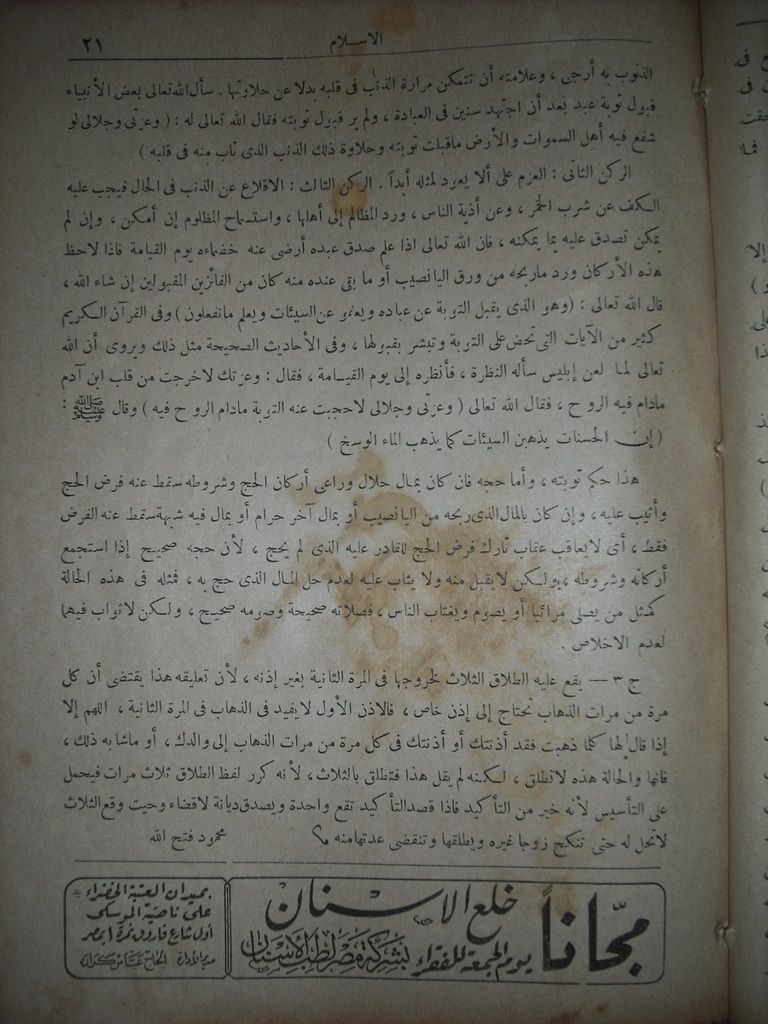 الاسلام ٢١
الذنوب به أرجى ، وعلامته أن تتمكن مرارة الذنب فى قلبه بدلا عن حلاوتها . سأل الله تعالى بعض الأنبياء
قبول توبة عبد بعد أن اجتهد سنين فى العبادة ، ولم ير قبول توبته فقال الله تعالى له : ( وعزتى وجلالى لو
شفع فيه أهل السموات والأرض ماقبلت توبته وحلاوة ذلك الذنب الذى تاب منه فى قلبه )
الركن الثانى : العزم على ألا يعود لمثله أبداً . الركن الثالث : الاقلاع عن الذنب فى الحال فيجب عليه
الكف عن شرب الخمر ، وعن أذية الناس ، ورد المظالم إلى أهلها ، واستسماح المظلوم إن أمكن ، وإن لم
يمكن تصدق عليه بما يمكنه ، فان الله تعالى اذا علم صدق عبده أرضى عنه خصماءه يوم القيامة فاذا لاحظ
هذه الأركان ورد ماربحه من ورق اليانصيب أو ما بقى عنده منه كان من الفائزين المقبولين إن شاء الله ،
قال الله تعالى : ( وهو الذى يقبل التوبة عن عباده ويعفو عن السيئات ويعلم ماتفعلون ) وفى القرآن الكريم
كثير من الآيات التى تحض على التوبة وتبشر بقبولها ، وفى الأحاديث الصحيحة مثل ذلك ويروى أن الله
تعالى لما لعن إبليس سأله النظرة ، فأنظره إلى يوم القيامة ، فقال : وعزتك لاخرجت من قلب ابن آدم
مادام فيه الروح ، فقال الله تعالى ( وعزتى وجلالى لاحجبت عنه التوبة مادام الروح فيه ) وقال ﷺ :
( إن الحسنات يذهبن السيئات كما يذهب الماء الوسخ )
هذا حكم توبته ، وأما حجه فان كان بمال حلال وراعى أركان الحج وشروطه سقط عنه فرض الحج
وأثيب عليه ، وإن كان بالمال الذى ربحه من اليانصيب أو بمال آخر حرام أو بمال فيه شبهة سقط عنه الفرض
فقط ، أى لايعاقب عقاب تارك فرض الحج للقادر عليه الذى لم يحج ، لأن حجه صحيح إذا استجمع
أركانه وشروطه ، ولكن لايقبل منه ولا يثاب عليه لعدم حل المال الذى حج به ، فمثله فى هذه الحالة
كمثل من يصلى مرائيا أو يصوم ويغتاب الناس ، فصلاته صحيحة وصومه صحيح ، ولكن لاثواب فيهما
لعدم الاخلاص .
ج ٣ — يقع عليه الطلاق الثلاث لخروجها فى المرة الثانية بغير إذنه ، لأن تعليقه هذا يقتضى أن كل
مرة من مرات الذهاب تحتاج إلى إذن خاص ، فالاذن الأول لايفيد فى الذهاب فى المرة الثانية ، اللهم إلا
إذا قال لها كلما ذهبت فقد أذنتك أو أذنتك فى كل مرة من مرات الذهاب إلى والدك ، أو ماشابه ذلك ،
فانها والحالة هذه لاتطلق ، لكنه لم يقل هذا فتطلق بالثلاث ، لأنه كرر لفظ الطلاق ثلاث مرات فيحمل
على التأسيس لأنه خير من التأكيد فاذا قصد التأكيد تقع واحدة ويصدق ديانة لاقضاء وحيث وقع الثلاث
لاتحل له حتى تنكح زوجا غيره ويطلقها وتنقضى عدتها منه
محمود فتح الله
مجّاناً
خلع الاسنان
يوم الجمعة للفقراء بشركة مصر لطب الاسنان
بميدان العتبة الخضراء
على ناصية الموسكى
أول شارع فاروق نمرة ١ بمصر
مدير الادارة الحاج عباس كراره